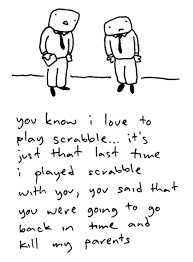 you know i love to
play scrabble... it's
just that last time
i played scrabble
with you, you said that
you were going to go
back in time and
kill my parents